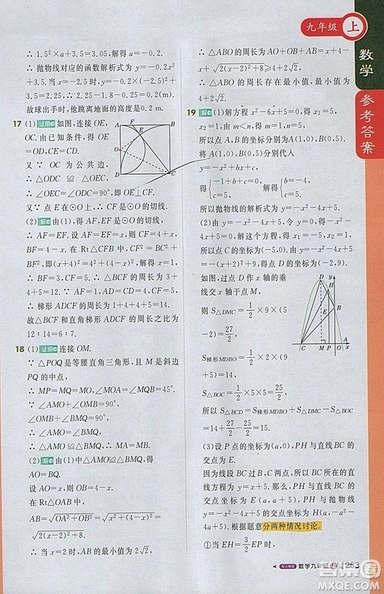 九年级 上
数学
参考答案
∴1.5²×a+3.5=3.05,解得a=-0.2.
∴抛物线对应的函数解析式为y=-0.2x²+3.5.
当x=-2.5时,y=-0.2×(-2.5)²+
3.5=2.25.∴2.25-1.8-0.25=0.2(m).
故球出手时,他跳离地面的高度是0.2 m.
17 (1)证明 如图,连接OE,
OC,由已知条件,得OB=
OE,BC=EC.
又∵OC为公共边,
∴△OBC≌△OEC.
∴∠OEC=∠OBC=90°.
又∵点E在⊙O上,∴CF是⊙O的切线.
(2)解 由题意,得AF,EF是⊙O的切线,
∴AF=EF.设AF=EF=x,则CF=4+x,
BF=4-x.在Rt△CFB中,BC²+BF²=
CF²,即4²+(4-x)²=(4+x)²,解得x=1.
∴BF=3,CF=5.
∴AE=EF=1,AD=CD=4,CF=5.
∴梯形ADCF的周长为1+4+4+5=14.
故△BCF和直角梯形ADCF的周长之比为
12∶14=6∶7.
18 (1)证明 连接OM,
∵△POQ是等腰直角三角形,且M是斜边
PQ的中点,
∴MP=MQ=MO,∠MOA=∠MQB=45°.
∵∠AMO+∠OMB=∠QMB+∠OMB=90°,
∴∠AMO=∠QMB.
∴△AMO≌△BMQ.∴MA=MB.
(2)解 由(1)中△AMO≌△BMQ,得
AO=BQ.
设AO=x,则OB=4-x.
在Rt△OAB中,
AB=
∴当x=2时,AB的最小值为2
∴△ABO的周长为AO+OB+AB=4+
∴△ABO的周长存在最小值,最小值为
4+2
19 解 (1)解方程x²-6x+5=0,得x₁=5,
x₂=1.由m<n,得m=1,n=5.
所以点A,B的坐标分别为A(1,0),B(0,5).
将A(1,0),B(0,5)的坐标分别代入
y=-x²+bx+c,
得{-1+b+c=0, c=5, 解得{b=-4, c=5.
所以抛物线的解析式为y=-x²-4x+5.
(2)由y=-x²-4x+5,令y=0,得-x²-4x+
5=0.解这个方程,得x₁=-5,x₂=1.
所以点C的坐标为(-5,0).由y=-x²-4x+5
=-(x+2)²+9,得点D的坐标为(-2,9).
如图,过点D作x轴的垂
线交x轴于点M,
则S△DMC=1/2×9×(5
-2)=27/2,
S梯形MDBO=1/2×2×
(9+5)=14,
S△BOC=1/2×5×5=25/2,
所以S△BCD=S△DMC+S梯形MDBO-S△BOC=
27/2+14-25/2=15.
(3)设P点的坐标为(a,0),PH与直线BC的
交点为E.
因为线段BC过B,C两点,所以直线BC的
方程为y=x+5.那么,PH与直线BC的
交点坐标为E(a,a+5),PH与抛物线
y=-x²-4x+5的交点坐标为H(a,-a²
-4a+5).根据题意分两种情况讨论.
①当EH=3/2 EP时,
数学九年级上 263